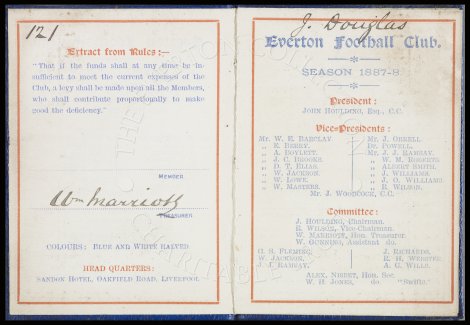 121
Extract from Rules :—
"That if the funds shall at any time be in-
sufficient to meet the current expenses of the
Club, a levy shall be made upon all the Members,
who shall contribute proportionally to make
good the deficiency."
MEMBER.
Wm Marriott
TREASURER.
COLOURS: BLUE AND WHITE HALVED.
HEAD QUARTERS:
SANDON HOTEL, OAKFIELD ROAD, LIVERPOOL.
J. Douglas
Everton Football Club.
SEASON 1887-8
President :
JOHN HOULDING, ESQ., C.C.
Vice-Presidents :
Mr. W. E. BARCLAY. Mr. J. ORRELL.
„ E. BERRY. Dr. POWELL.
„ A. BOYLETT. Mr. J. J. RAMSAY.
„ J. C. BROOKS. „ W. M. ROBERTS.
„ D. T. ELIAS. „ ALBERT SMITH.
„ W. JACKSON. „ J. WILLIAMS.
„ W. LOWE. „ J. O. WILLIAMS.
„ W. MASTERS. „ R. WILSON.
Mr. J. WOODCOCK, C.C.
Committee :
J. HOULDING, Chairman.
R. WILSON, Vice-Chairman.
W. MARRIOTT, Hon. Treasurer.
W. GUNNING, Assistant do.
G. S. FLEMING, J. RICHARDS,
W. JACKSON, R. H. WEBSTER,
J. J. RAMSAY, A. C. WILLS.
ALEX. NISBET, Hon. Sec.
W. H. JONES, do "Swifts."